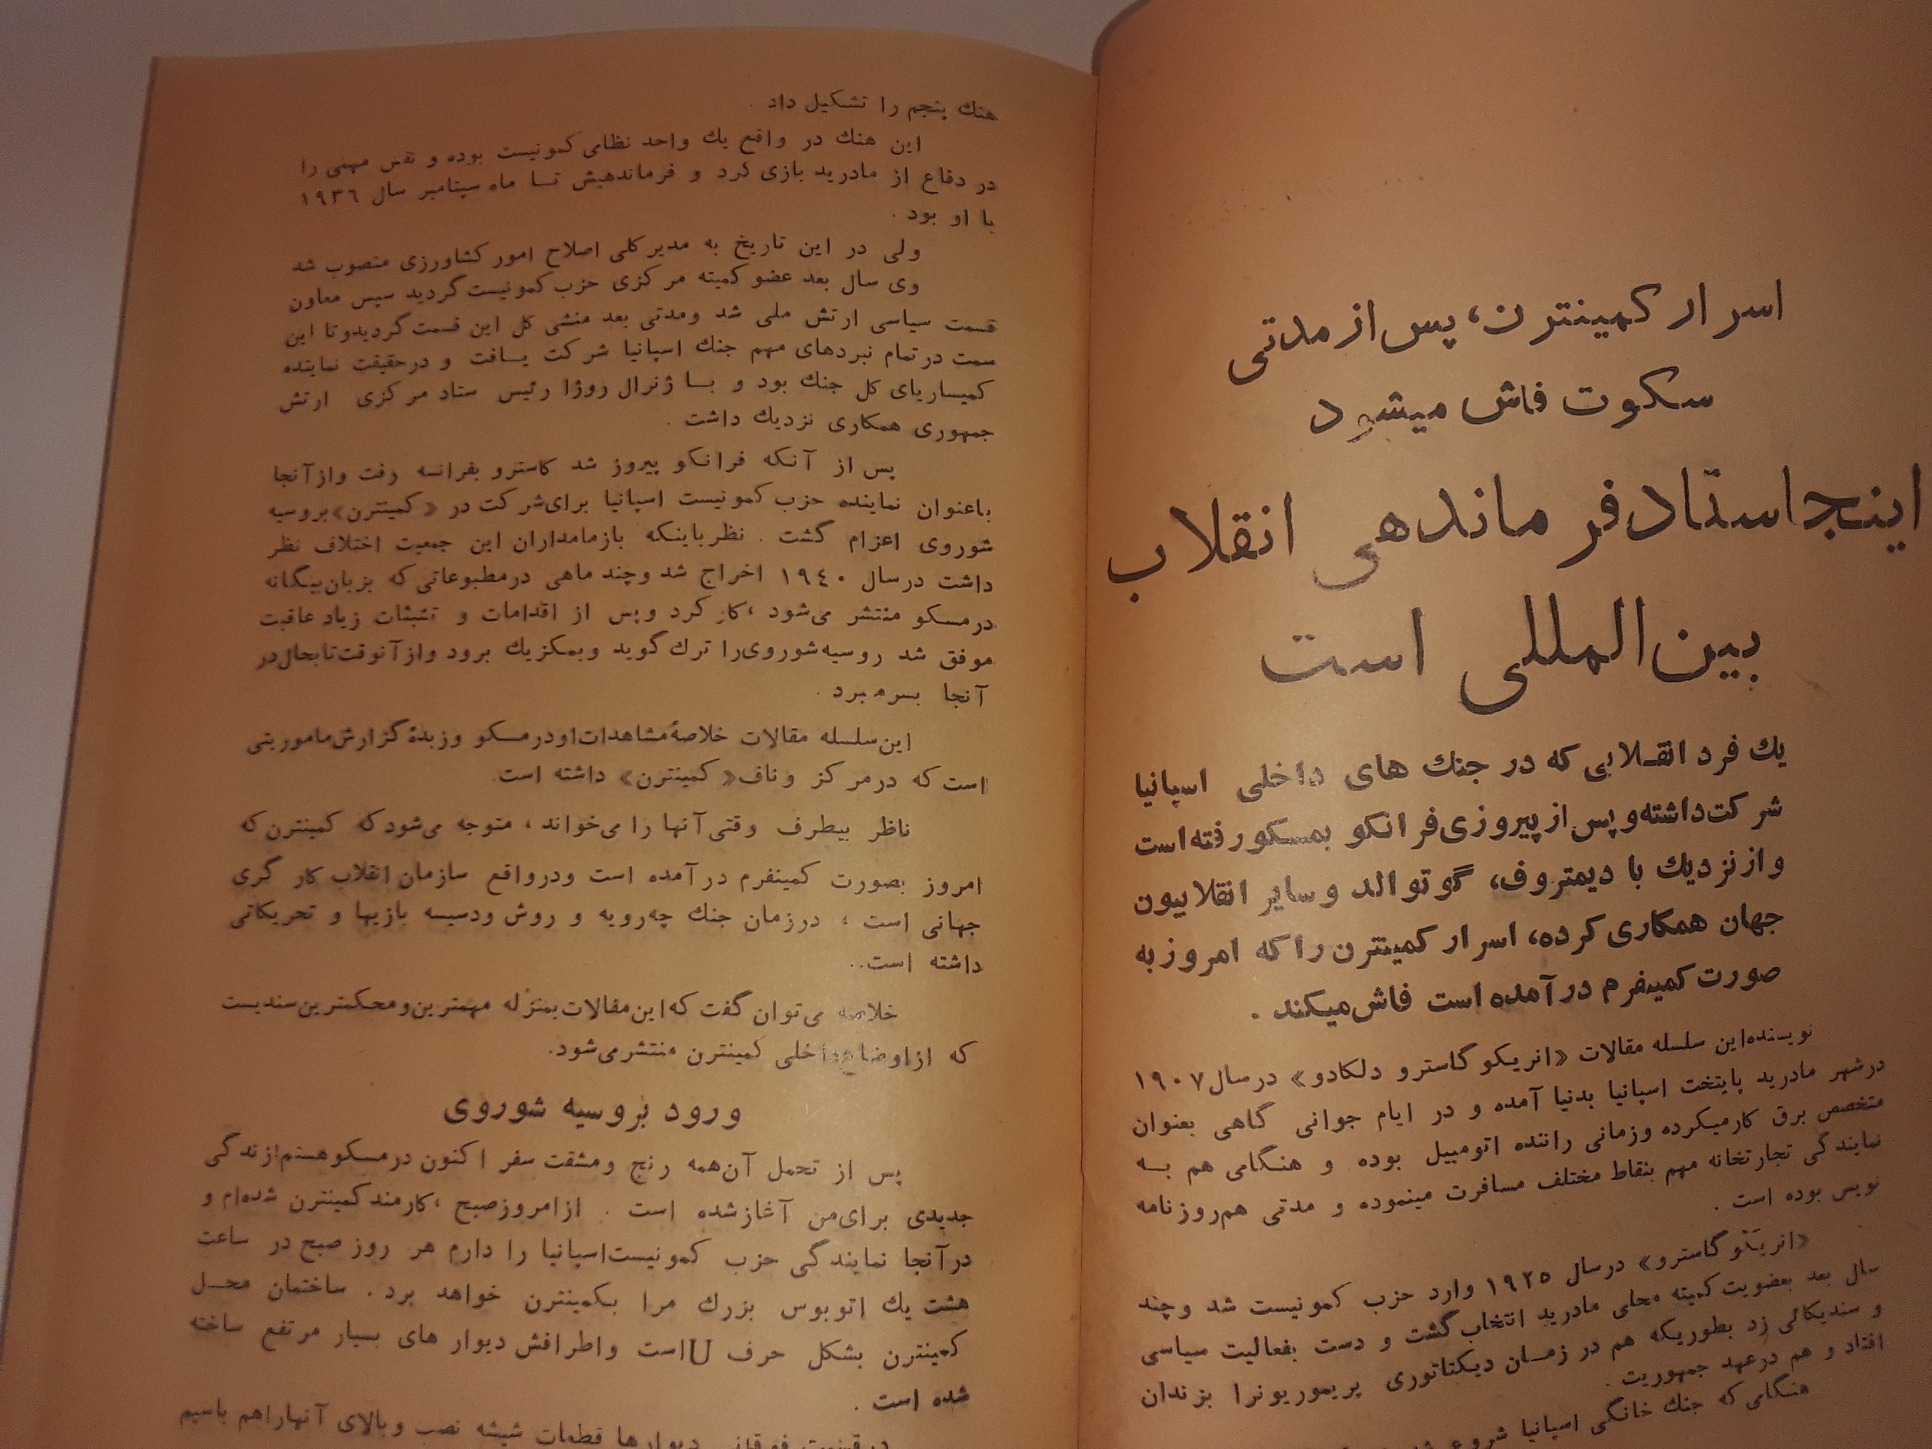 اسرار کمینترن، پس از مدتی
سکوت فاش میشود
اینجا ستاد فرماندهی انقلاب
بین‌المللی است
یك فرد انقلابی که در جنك های داخلی اسپانیا
شرکت داشته و پس از پیروزی فرانکو بمسکو رفته است
و از نزدیك با دیمتروف، گوتوالد و سایر انقلابیون
جهان همکاری کرده، اسرار کمینترن را که امروز به
صورت کمینفرم در آمده است فاش میکند .
نویسنده این سلسله مقالات «انریکو گاسترو دلکادو» در سال ۱۹۰۷
در شهر مادرید پایتخت اسپانیا بدنیا آمده و در ایام جوانی گاهی بعنوان
متخصص برق کار میکرده و زمانی راننده اتومبیل بوده و هنگامی هم به
نمایندگی تجارتخانه مهم بنقاط مختلف مسافرت مینموده و مدتی هم روزنامه
نویس بوده است .
«انریکو گاسترو» در سال ۱۹۲۵ وارد حزب کمونیست شد و چند
سال بعد بعضویت کمیته محلی مادرید انتخاب گشت و دست بفعالیت سیاسی
و سندیکالی زد بطوریکه هم در زمان دیکتاتوری پریموریونرا بزندان
افتاد و هم در عهد جمهوریت .
هنگامی که جنك خانگی اسپانیا شروع شد
هنك پنجم را تشکیل داد .
این هنك در واقع یك واحد نظامی کمونیست بوده و نقش مهمی را
در دفاع از مادرید بازی کرد و فرماندهیش تا ماه سپتامبر سال ۱۹۳٦
با او بود .
ولی در این تاریخ به مدیر کلی اصلاح امور کشاورزی منصوب شد
وی سال بعد عضو کمیته مرکزی حزب کمونیست گردید سپس معاون
قسمت سیاسی ارتش ملی شد و مدتی بعد منشی کل این قسمت گردید و تا این
سمت در تمام نبردهای مهم جنك اسپانیا شرکت یافت و در حقیقت نماینده
کمیساریای کل جنك بود و با ژنرال روژا رئیس ستاد مرکزی ارتش
جمهوری همکاری نزدیك داشت .
پس از آنکه فرانکو پیروز شد کاسترو بفرانسه رفت و از آنجا
باعنوان نماینده حزب کمونیست اسپانیا برای شرکت در «کمینترن» بروسیه
شوروی اعزام گشت . نظر باینکه بازمامداران این جمعیت اختلاف نظر
داشت در سال ۱۹٤۰ اخراج شد و چند ماهی در مطبوعاتی که بزبان بیگانه
در مسکو منتشر می‌شود ،کار کرد و پس از اقدامات و تشبثات زیاد عاقبت
موفق شد روسیه شوروی را ترك گوید و بمکزیك برود و از آنوقت تا بحال در
آنجا بسر میبرد .
این سلسله مقالات خلاصهٔ مشاهدات او در مسکو و زبدهٔ گزارش ماموریتی
است که در مرکز و ناف «کمینترن» داشته است.
ناظر بیطرف وقتی آنها را می‌خواند ، متوجه می‌شود که کمینترن که
امروز بصورت کمینفرم در آمده است و در واقع سازمان انقلاب کارگری
جهانی است ، در زمان جنك چه رویه و روش و دسیسه بازیها و تحریکاتی
داشته است..
خلاصه می‌توان گفت که این مقالات بمنزله مهمترین و محکمترین سندیست
که از اوضاع داخلی کمینترن منتشر می‌شود.
ورود بروسیه شوروی
پس از تحمل آن‌همه رنج و مشقت سفر اکنون در مسکو هستم از ندگی
جدیدی برای من آغاز شده است . از امروز صبح ،کارمند کمینترن شده‌ام و
در آنجا نمایندگی حزب کمونیست اسپانیا را دارم هر روز صبح در ساعت
هشت یك اتوبوس بزرك مرا بکمینترن خواهد برد . ساختمان محل
کمینترن بشکل حرف U است و اطرافش دیوار های بسیار مرتفع ساخته
شده است .
در قسمت فوقانی دیوارها قطعات شیشه نصب و بالای آنها را هم باسیم